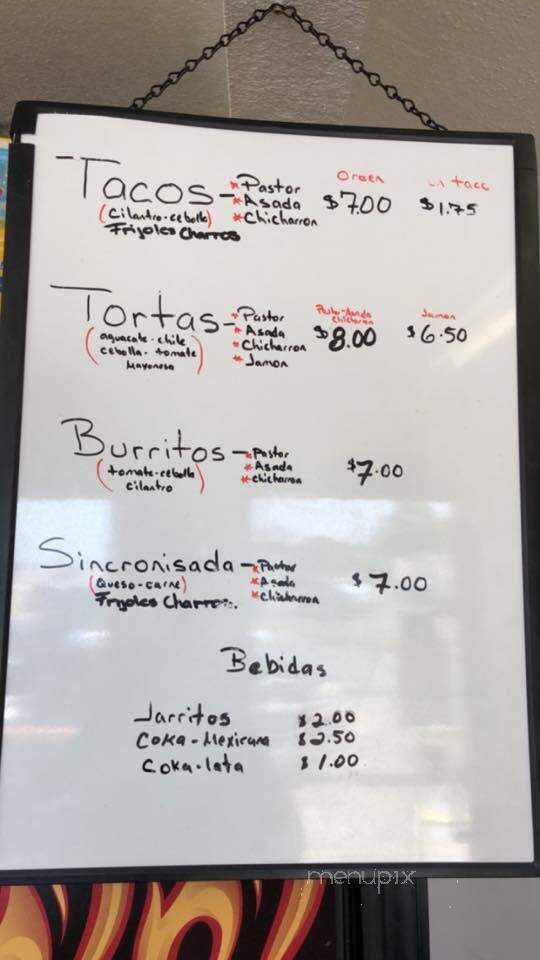 Tacos - *Pastor Orden taco
*Asada $7.00 $1.75
(Cilantro-cebolla) *Chicharron
Frijoles Charros
Tortas - *Pastor Pastor-Asada Jamon
chicharron
(aguacate-chile *Asada $8.00 $6.50
cebolla-tomate *Chicharron
Mayonesa) *Jamon
Burritos - *Pastor
(tomate-cebolla *Asada $7.00
cilantro) *chicharron
Sincronisada - *Pastor
(Queso-carne) *Asada $7.00
Frijoles Charros. *chicharron
Bebidas
Jarritos $2.00
Coka-Mexicana $2.50
Coka-lata $1.00
menupix